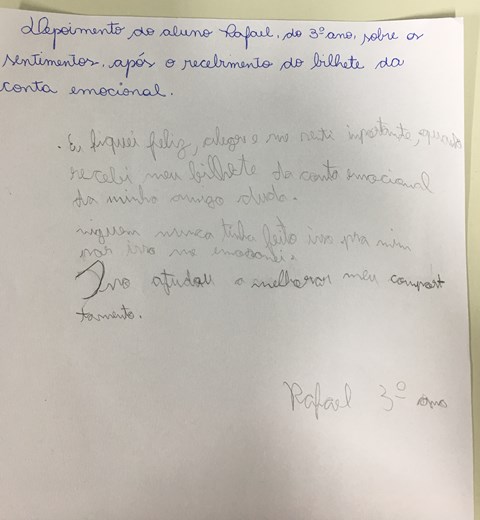 Depoimento do aluno Rafael, do 3º ano, sobre os
sentimentos, após o recebimento do bilhete da
conta emocional.
. E, fiquei feliz, alegre e me senti importante, quando
recebi meu bilhete da conta emocional
da minha amiga duda.
niguem nunca tinha feito iso pra mim
me emocionei.
Iso ajudou a melhorar meu comport
tamento.
Rafael 3º ano